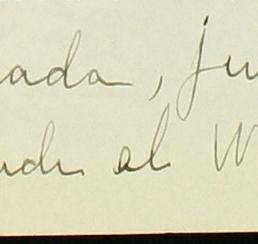 ada, ju
ude al W